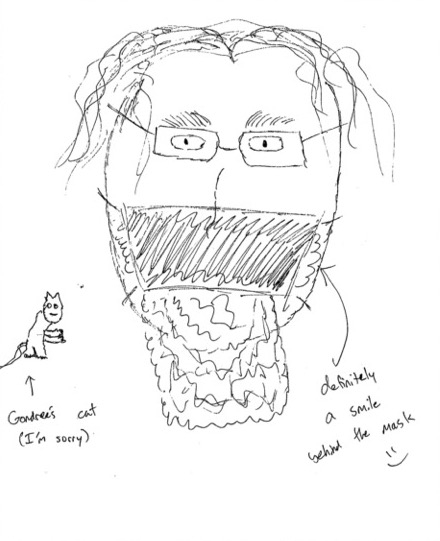 Gondree's cat
(I'm sorry)
definitely
a smile
behind the mask
:)